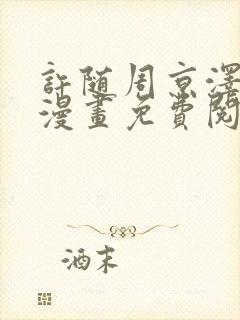 許随周京澤
漫畫免費閱
酒末